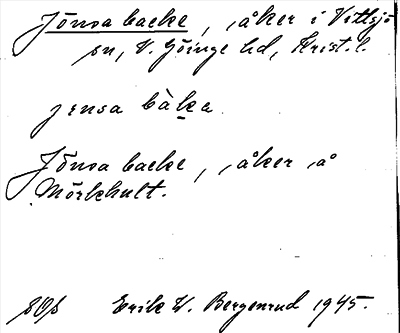 Jönsa backe, åker i Vittsjö
sn, V. Göinge hd, Krist. l.
jensa bàka
Jönsa backe, åker å
Mörkhult.
Erik W. Bergenrud 1945.